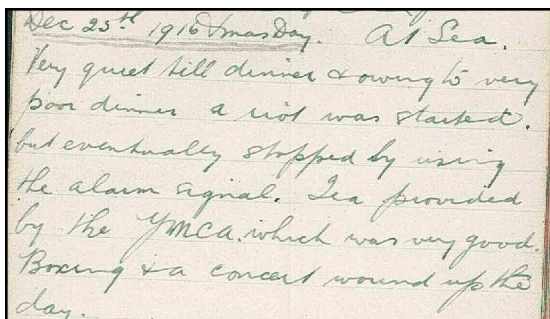 Dec 25th 1916 Xmas Day. At Sea.
Very quiet till dinner & owing to very
poor dinner a riot was started.
but eventually stopped by using
the alarm signal. Tea provided
by the YMCA. which was very good.
Boxing & a concert wound up the
day.